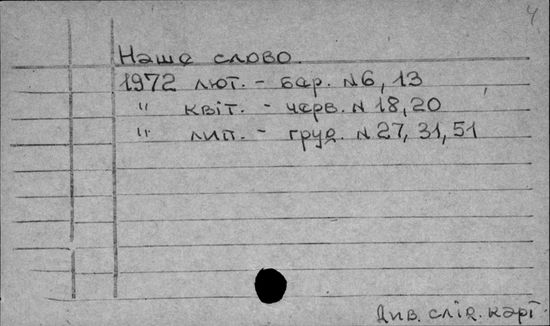 4
Наше слово.
1972 лют. – бер. N6, 13
" квіт. – черв. N 18, 20
" лип. – груд. N 27, 31, 51
Див. слід. карт.